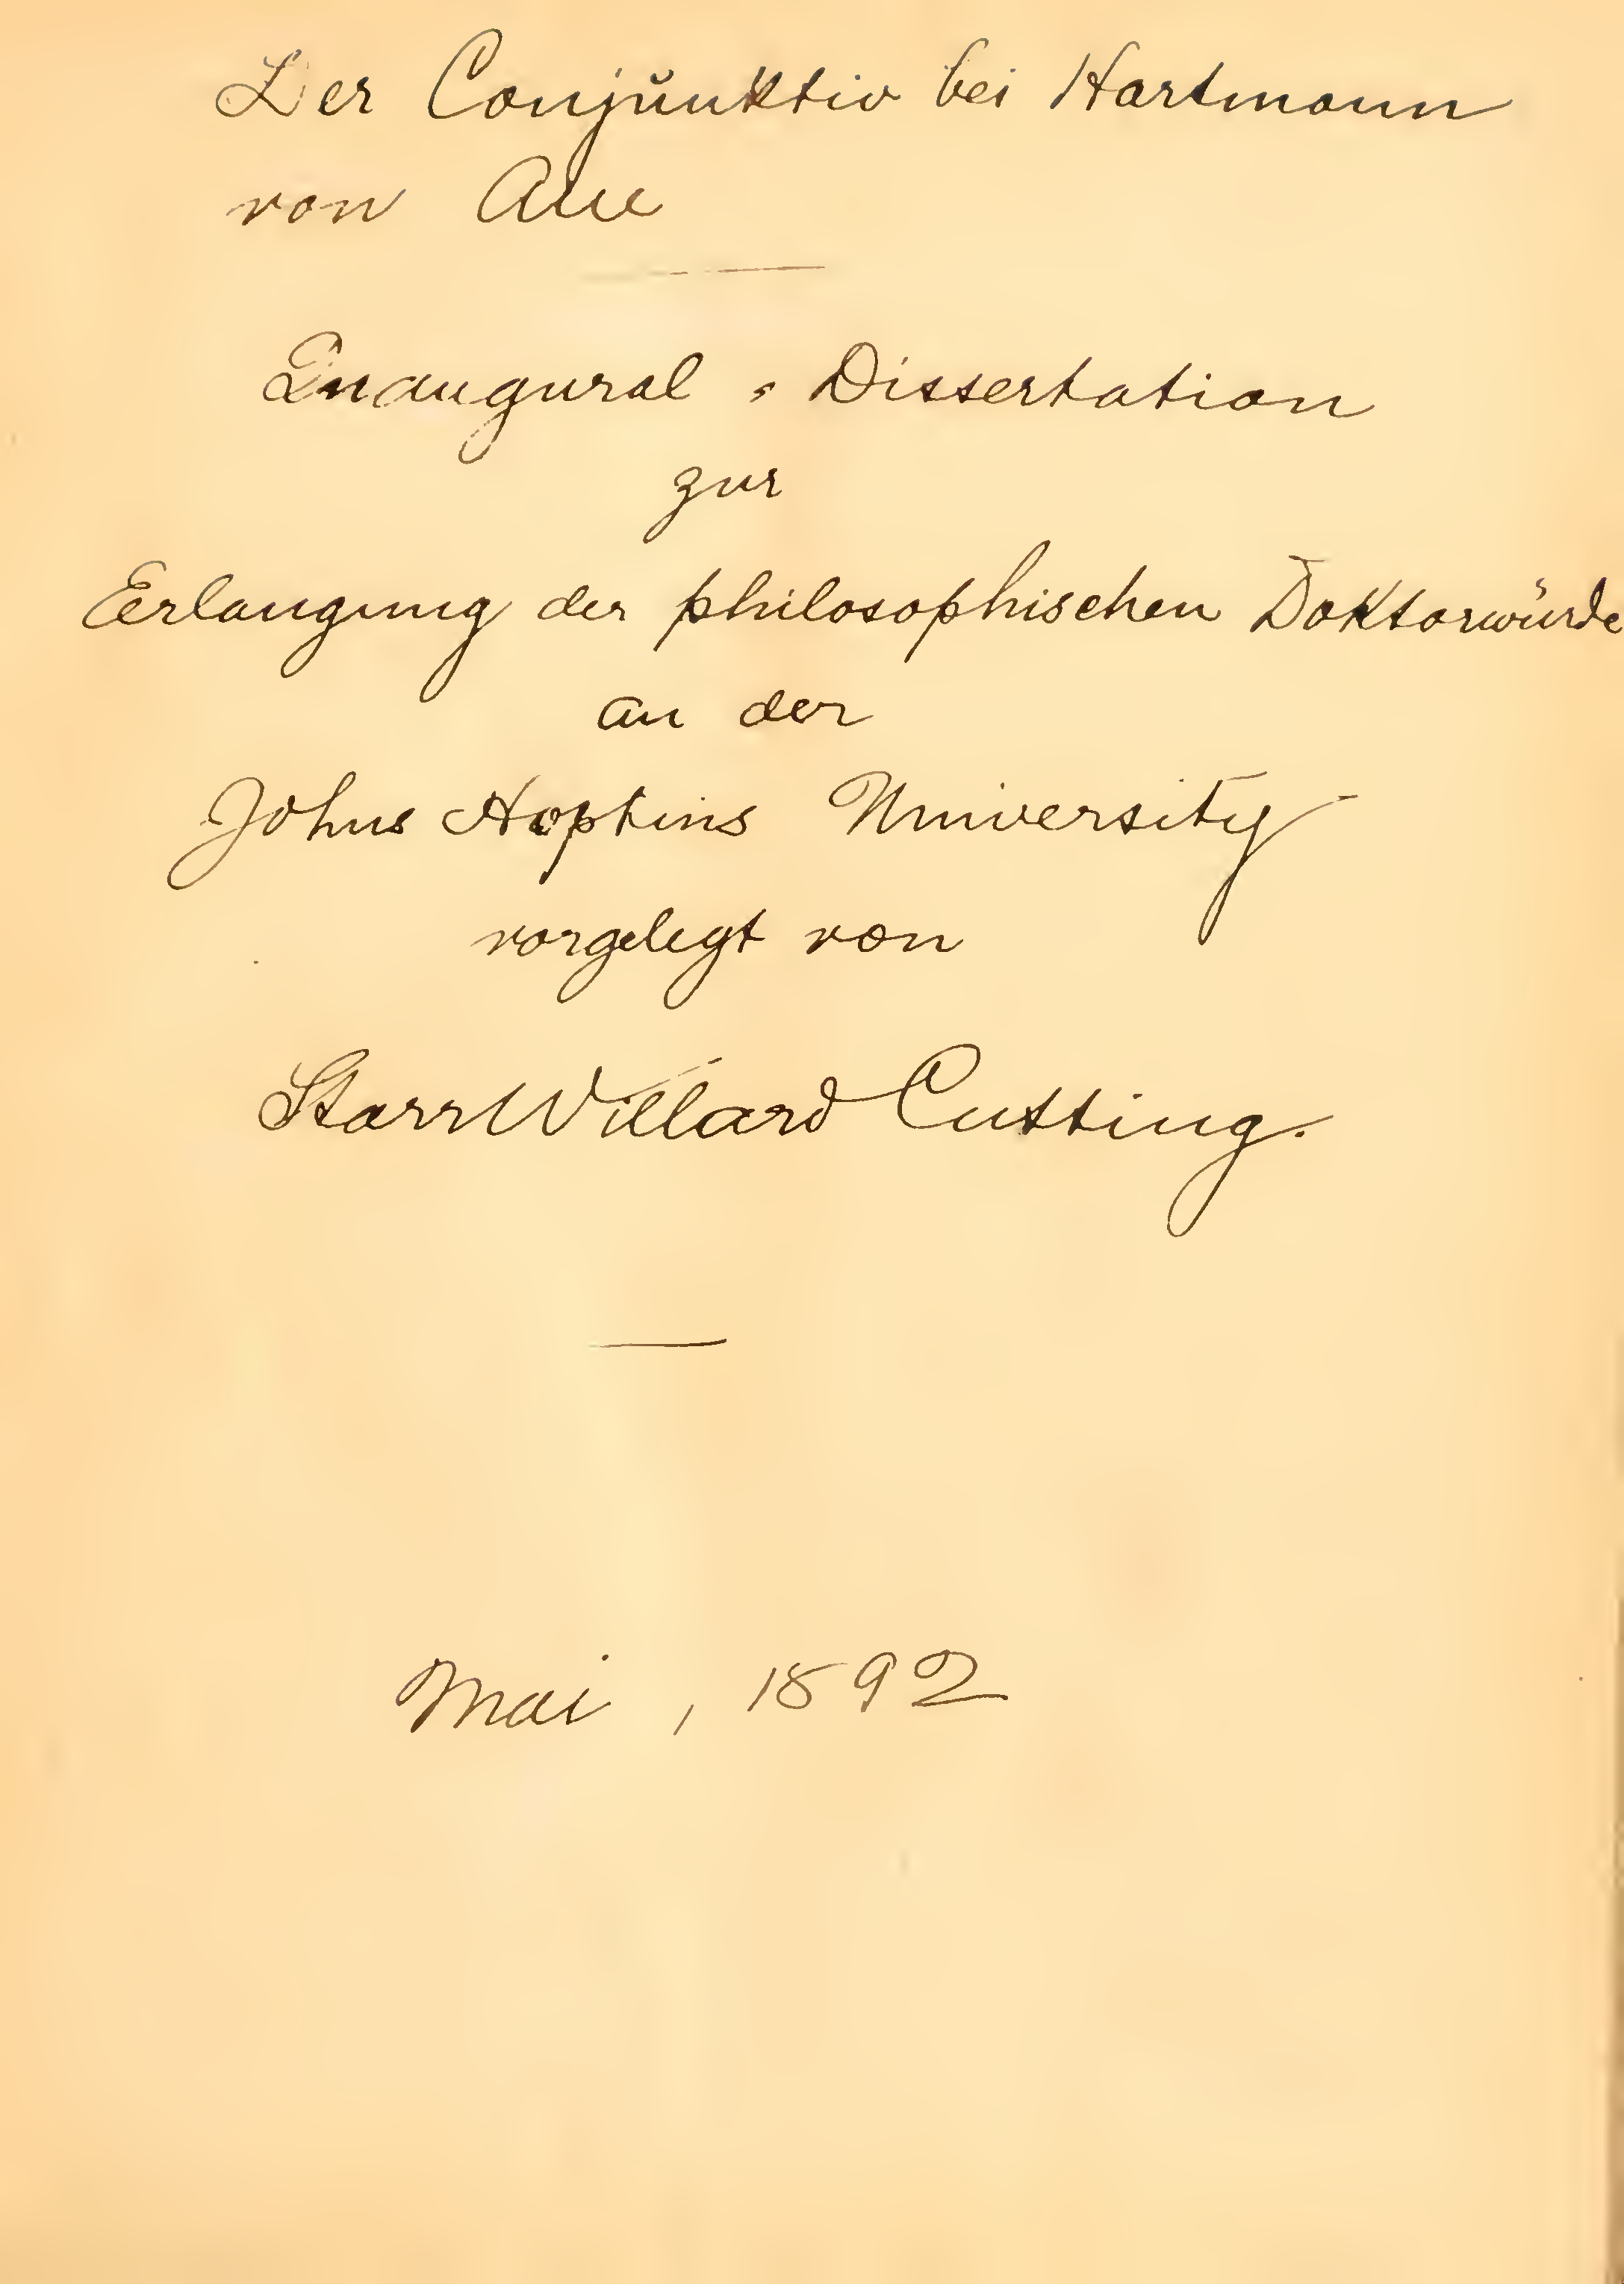 Der Conjunktiv bei Hartmann
von Aue
Inaugural - Dissertation
zur
Erlangung der philosophischen Doktorwürde
an der
Johns Hopkins University
vorgelegt von
Starr Willard Cutting.
Mai, 1892